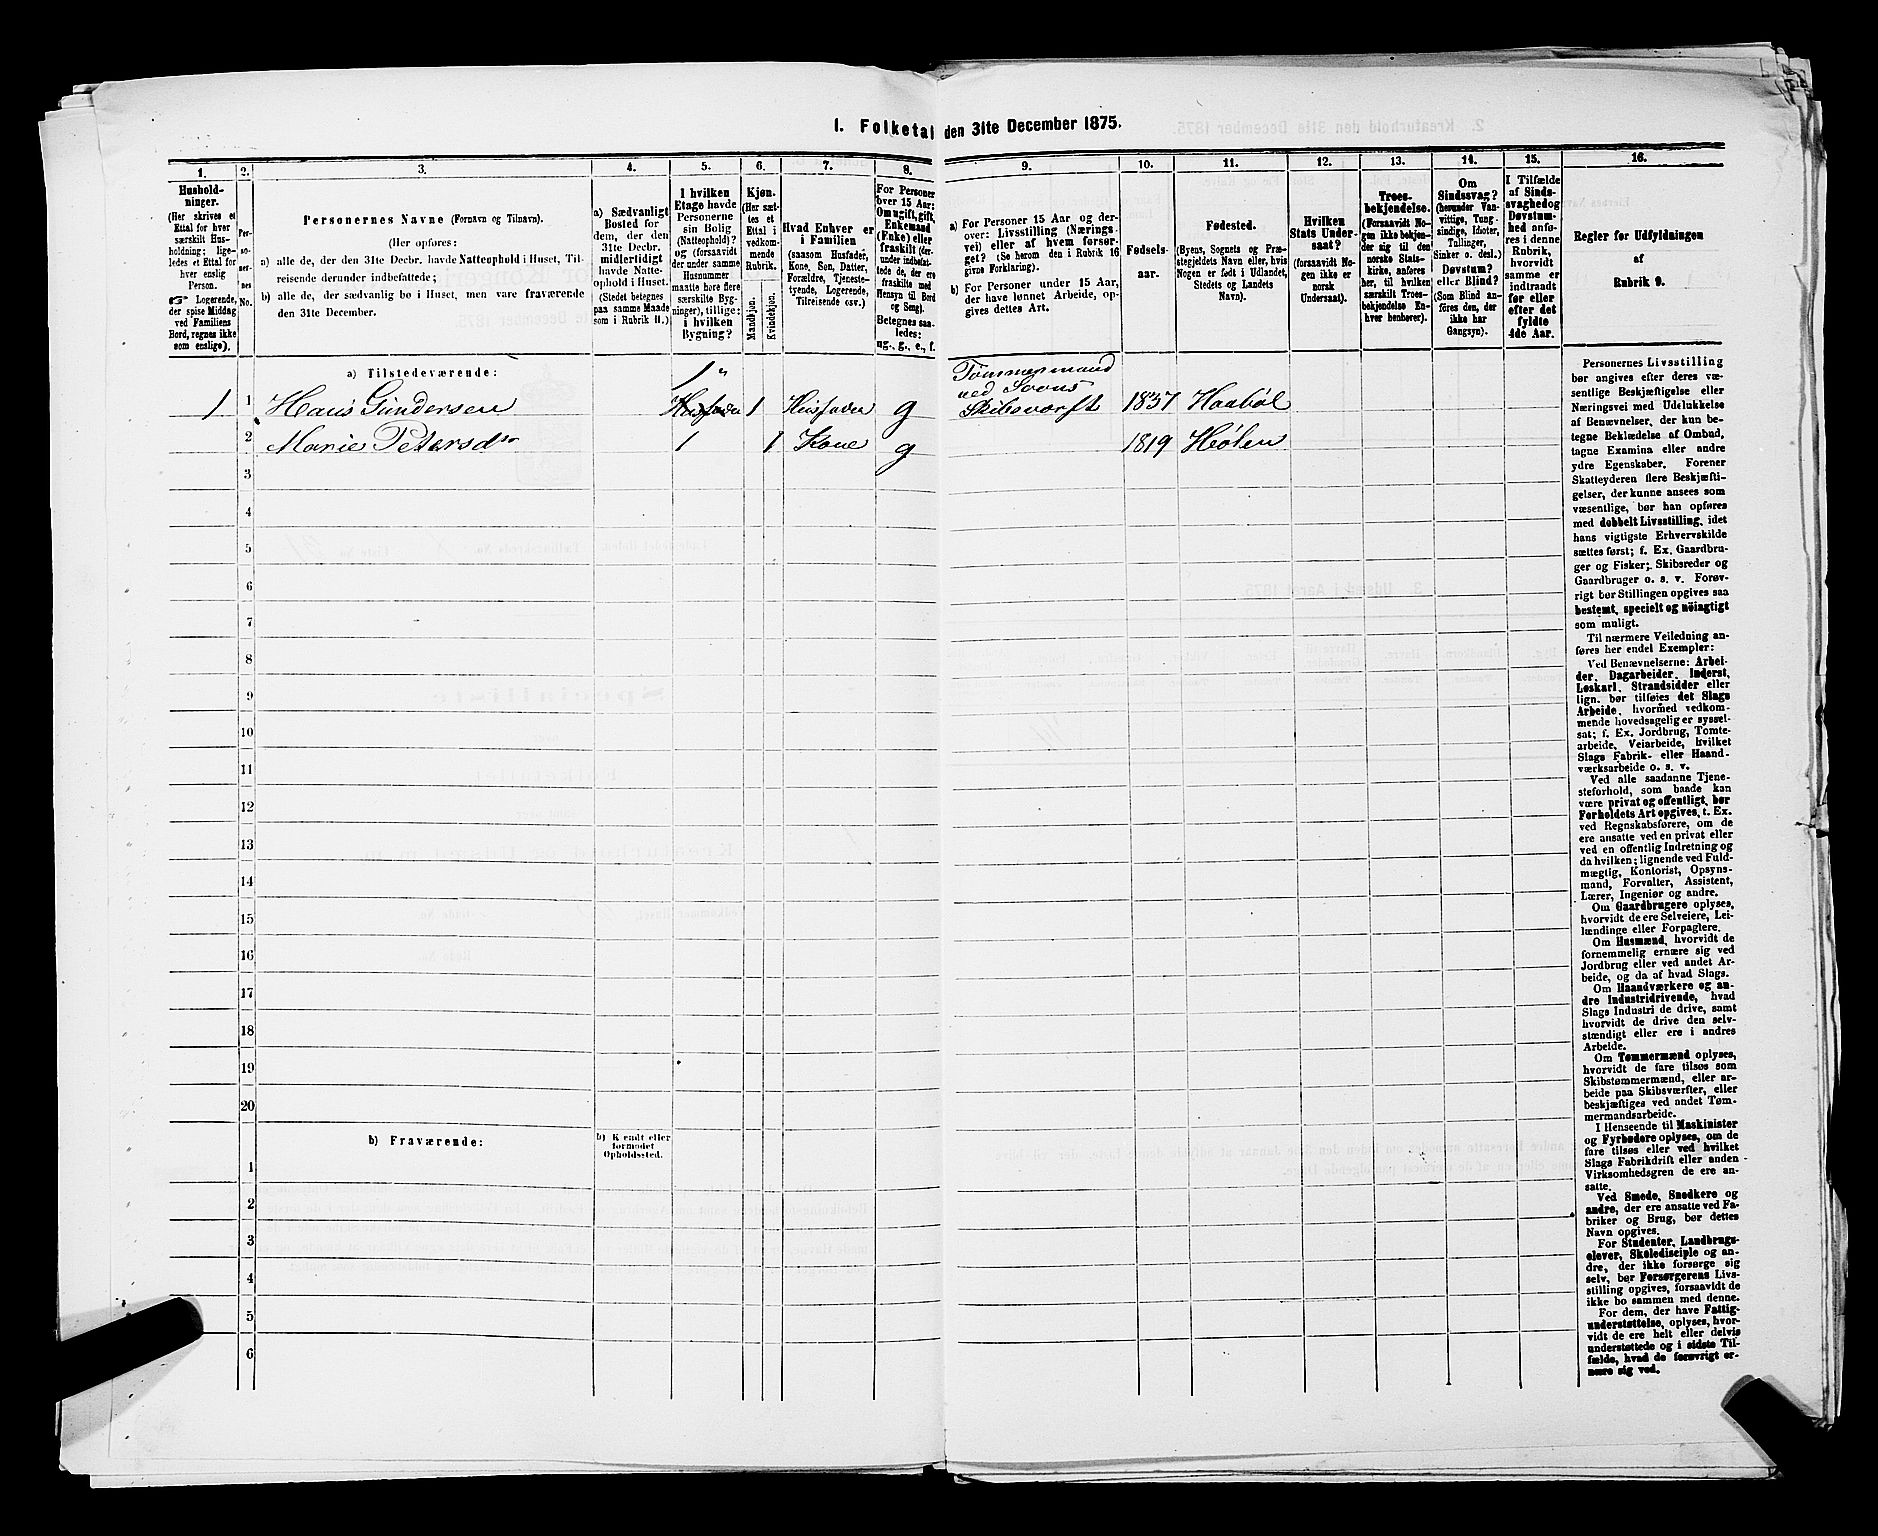 1. Folketal den 31te December 1875.
1.
Hushold-
ninger.
(Her skrives et
Ettal for hver
særskilt Hus-
holdning; lige-
ledes et Ettal for
hver enslig
Person.
☞ Logerende,
der spise Middag
ved Familiens
Bord, regnes ikke
som enslige).
2.
Per-
so-
ner-
nes
No.
3.
Personernes Navne (Fornavn og Tilnavn).
(Her opføres:
a) alle de, der den 31te Decbr. havde Natteophold i Huset, Til-
reisende derunder indbefattede;
b) alle de, der sædvanlig bo i Huset, men vare fraværende
den 31te December.
4.
a) Sædvanligt
Bosted for
dem, der den
31te Decbr.
midlertidigt
havde Natte-
ophold i Huset.
(Stedet betegnes
paa samme Maade
som i Rubrik 11.)
5.
I hvilken
Etage havde
Personerne
sin Bolig
(Natteophold)?
og (forsaavidt
der under samme
Husnummer
maatte høre flere
særskilte Byg-
ninger), tillige:
i hvilken
Bygning?
6.
Kjøn.
(Her sæt-
tes et
Ettal i
vedkom-
mende
Rubrik.
Mandkjøn.
Kvindekjøn.
7.
Hvad Enhver er
i Familien
(saasom Husfader,
Kone, Søn, Datter,
Forældre, Tjeneste-
tyende, Logerende,
Tilreisende osv.)
8.
For Personer
over 15 Aar:
Om ugift, gift,
Enkemand
(Enke) eller
fraskilt (der-
under indbefat-
tede de, der ere
fraskilte med
Hensyn til Bord
og Seng).
Betegnes saa-
ledes:
ug., g., e., f.
9.
a) For Personer 15 Aar og der-
over: Livsstilling (Nærings-
vei) eller af hvem forsør-
get? (Se herom den i Rubrik 16
givne Forklaring).
b) For Personer under 15 Aar,
der have lønnet Arbeide, op-
gives dettes Art.
10.
Fødsels-
aar.
11.
Fødested.
(Byens, Sognets og Præ-
stegjeldets Navn eller, hvis
Nogen er født i Udlandet,
Stedets og Landets
Navn).
12.
Hvilken
Stats Under-
saat?
(forsaavidt No-
gen ikke er
norsk
Undersaat).
13.
Troes-
bekjendelse.
(Forsaavidt No-
gen ikke bekjen-
der sig til den
norske Stats-
kirke, anføres
her, til hvilken
særskilt Troes-
bekjendelse En-
hver henhører).
14.
Om
Sindssvag?
(herunder Van-
vittige, Tung-
sindige, Idioter,
Tullinger,
Sinker o. desl.)
Døvstum?
eller Blind?
(Som Blind an-
føres den, der
ikke har
Gangsyn).
15.
I Tilfælde
af Sinds-
svaghed og
Døvstum-
hed anfø-
res i denne
Rubrik,
hvorvidt
samme er
indtraadt
før eller
efter det
fyldte
4de Aar.
16.
Regler for Udfyldningen
af
Rubrik 9.
a) Tilstedeværende:
1 1 Hans Gundersen 1 „ Husfader 1 Husfader g Tømmermand ved Soons Skibsværft 1837 Haabøl
2 Marie Petersd 1 1 Kone g 1819 Hølen
3
4
5
6
7
8
9
10
11
12
13
14
15
16
17
18
19
20
b) Fraværende:
b) Kjendt eller
formodet
Opholdssted.
1
2
3
4
5
6
Personernes Livsstilling
bør angives efter deres væ-
sentlige Beskjæftigelse eller
Næringsvei med Udelukkelse
af Benævnelser, der kun be-
tegne Beklædelse af Ombud,
tagne Examina eller andre
ydre Egenskaber. Forener
Skatteyderen flere Beskjæfti-
gelser, der kunne ansees som
væsentlige, bør han opføres
med dobbelt Livsstilling, idet
hans vigtigste Erhvervskilde
sættes først; f. Ex. Gaardbru-
ger og Fisker; Skibsreder og
Gaardbruger o. s. v. Forøv-
rigt bør Stillingen opgives saa
bestemt, specielt og nøiagtigt
som muligt.
Til nærmere Veiledning an-
føres her endel Exempler:
Ved Benævnelserne: Arbei-
der, Dagarbeider, Inderst,
Løskarl, Strandsidder eller
lign. bør tilføies det Slags
Arbeide, hvormed vedkom-
mende hovedsagelig er syssel-
sat; f. Ex. Jordbrug, Tomte-
arbeide, Veiarbeide, hvilket
Slags Fabrik- eller Haand-
værksarbeide o. s. v.
Ved alle saadanne Tjene-
steforhold, som baade kan
være privat og offentligt, bør
Forholdets Art opgives, t. Ex.
ved Regnskabsførere, om de
ere ansatte ved en privat eller
ved en offentlig Indretning og
da hvilken; lignende ved Fuld-
mægtig, Kontorist, Opsyns-
mand, Forvalter, Assistent,
Lærer, Ingeniør og andre.
Om Gaardbrugere oplyses,
hvorvidt de ere Selveiere, Lei-
lændinge eller Forpagtere.
Om Husmænd, hvorvidt de
fornemmelig ernære sig ved
Jordbrug eller ved andet Ar-
beide, og da af hvad Slags.
Om Haandværkere og an-
dre Industridrivende, hvad
Slags Industri de drive, samt
hvorvidt de drive den selv-
stændigt eller ere i andres
Arbeide.
Om Tømmermænd oplyses,
hvorvidt de fare tilsøs som
Skibstømmermænd, eller ar-
beide paa Skibsværfter, eller
beskjæftiges ved andet Tøm-
mermandsarbeide.
I Henseende til Maskinister
og Fyrbødere oplyses, om de
fare tilsøs eller ved hvilket
Slags Fabrikdrift eller anden
Virksomhedsgren de ere an-
satte.
Ved Smede, Snedkere og
andre, der ere ansatte ved Fa-
briker og Brug, bør dettes
Navn opgives.
For Studenter, Landbrugs-
elever, Skoledisciple og an-
dre, der ikke forsørge sig
selv, bør Forsørgerens Livs-
stilling opgives, forsaavidt de
ikke bo sammen med denne.
For dem, der have Fattig-
understøttelse, oplyses, hvor-
vidt de ere helt eller delvis
understøttede og i sidste Til-
fælde, hvad de forøvrigt er-
nære sig ved.